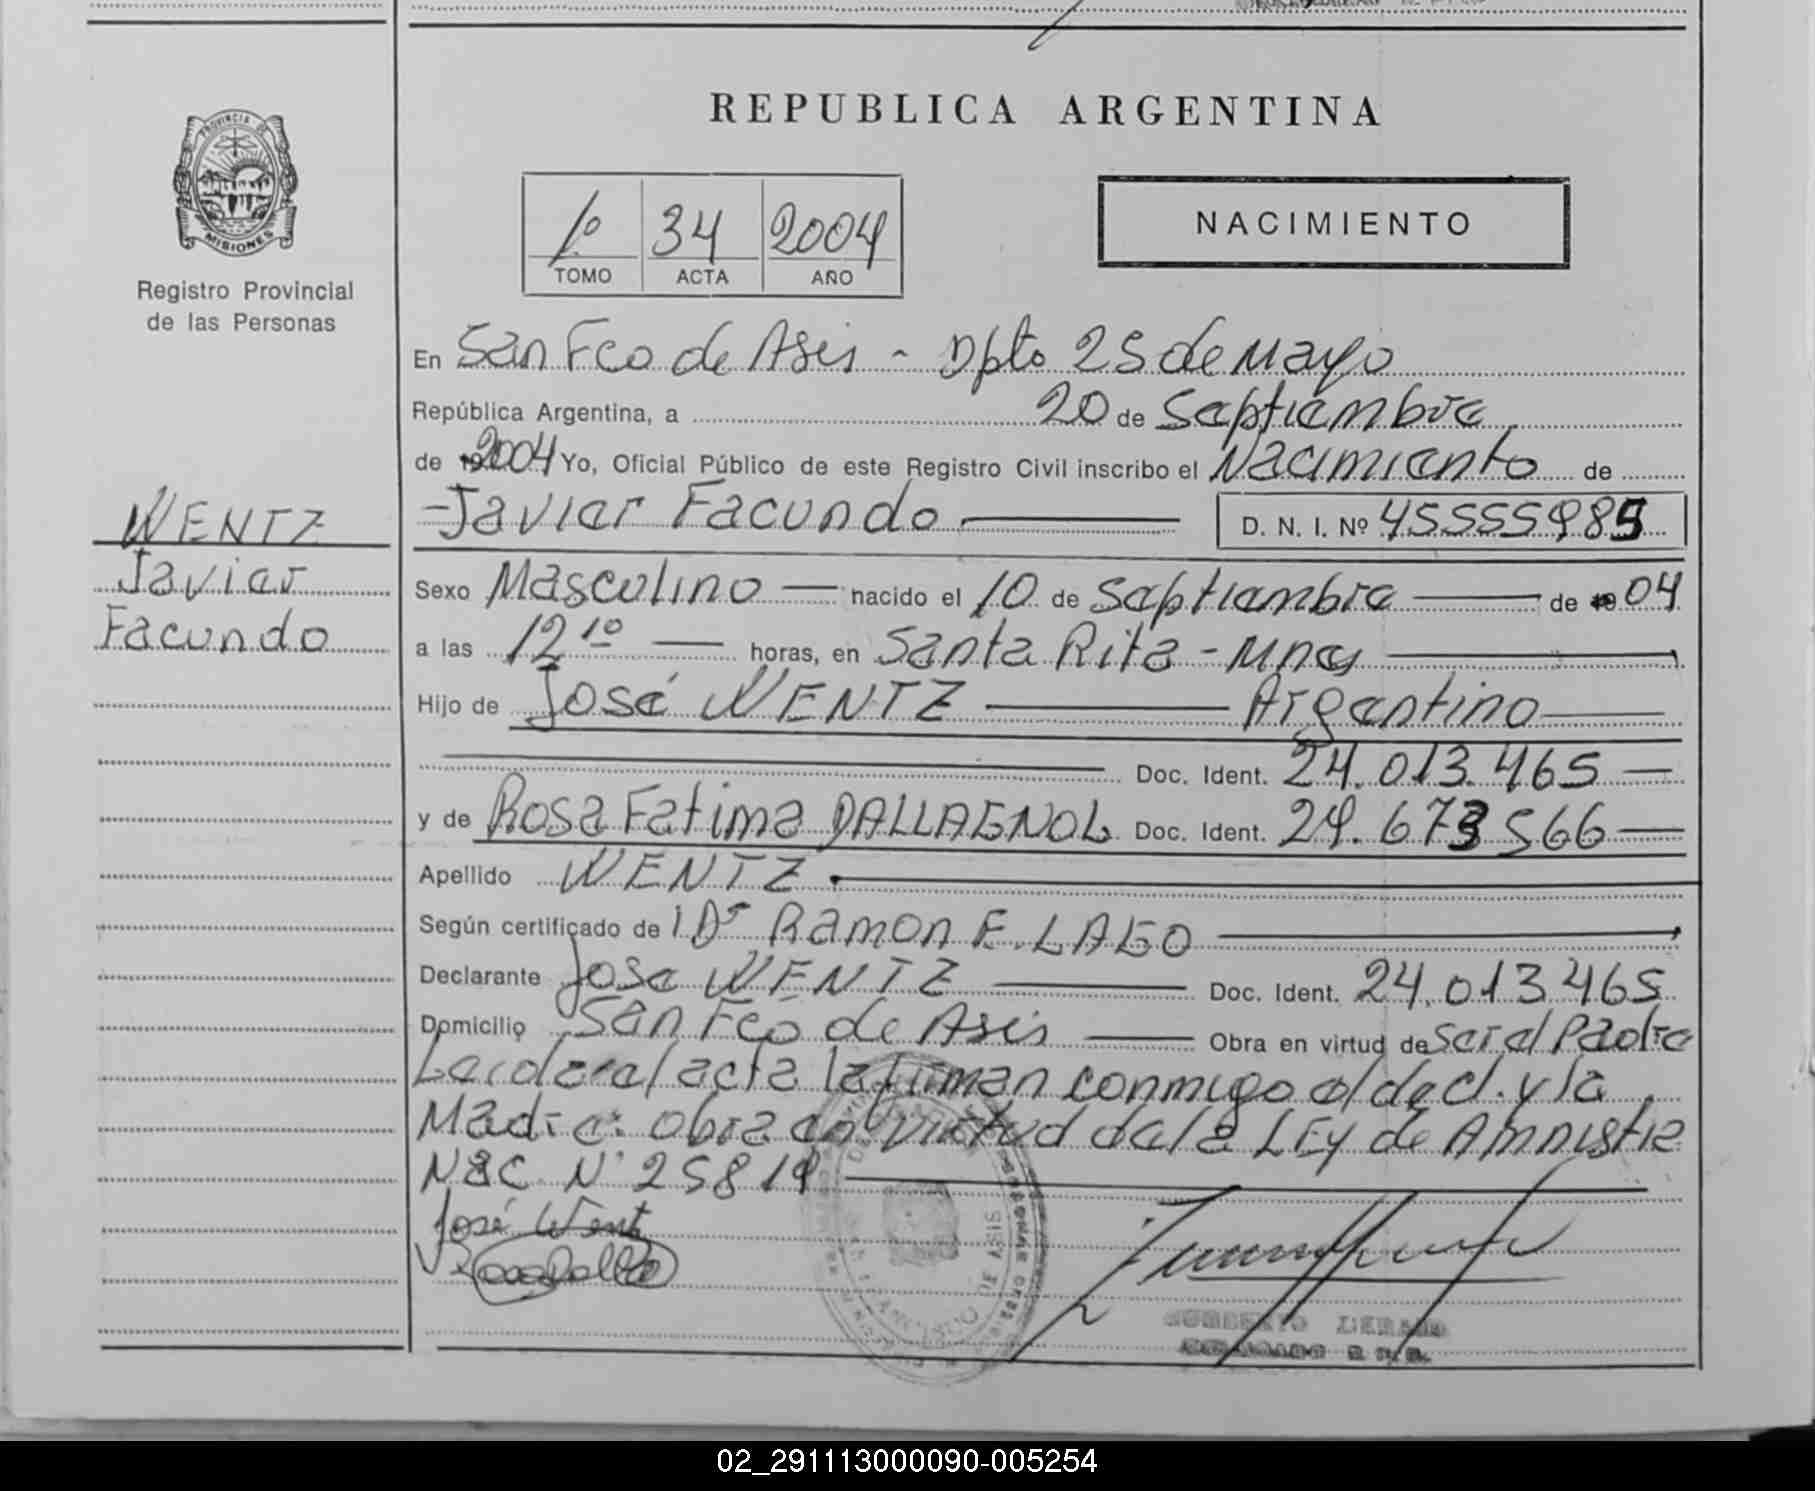 REPUBLICA ARGENTINA
PROVINCIA DE
MISIONES
Registro Provincial
de las Personas
1º 34 2004
TOMO ACTA AÑO
NACIMIENTO
En San Fco de Asis - Dpto 25 de Mayo
República Argentina, a 20 de Septiembre
de 2004 Yo, Oficial Público de este Registro Civil inscribo el Nacimiento de
WENTZ
Javier
Facundo
Javier Facundo D. N. I. Nº 45555985
Sexo Masculino nacido el 10 de Septiembre de 04
a las 12 10 horas, en Santa Rita - Mnes
Hijo de José WENTZ Argentino
Doc. Ident. 24.013.465
y de Rosa Fatima DALLAGNOL Doc. Ident. 29.673566
Apellido WENTZ
Según certificado de 1 Dr Ramon E. LAGO
Declarante Jose WENTZ Doc. Ident. 24.013465
Domicilio San Fco de Asis Obra en virtud de Ser el Padre
Leida el acta la firman conmigo el decl. y la
Madre: Obra en virtud de la LEy de Amnistia
Nac. Nº 25819
José Went
Rosa Dalla
DE ASIS
02_291113000090-005254